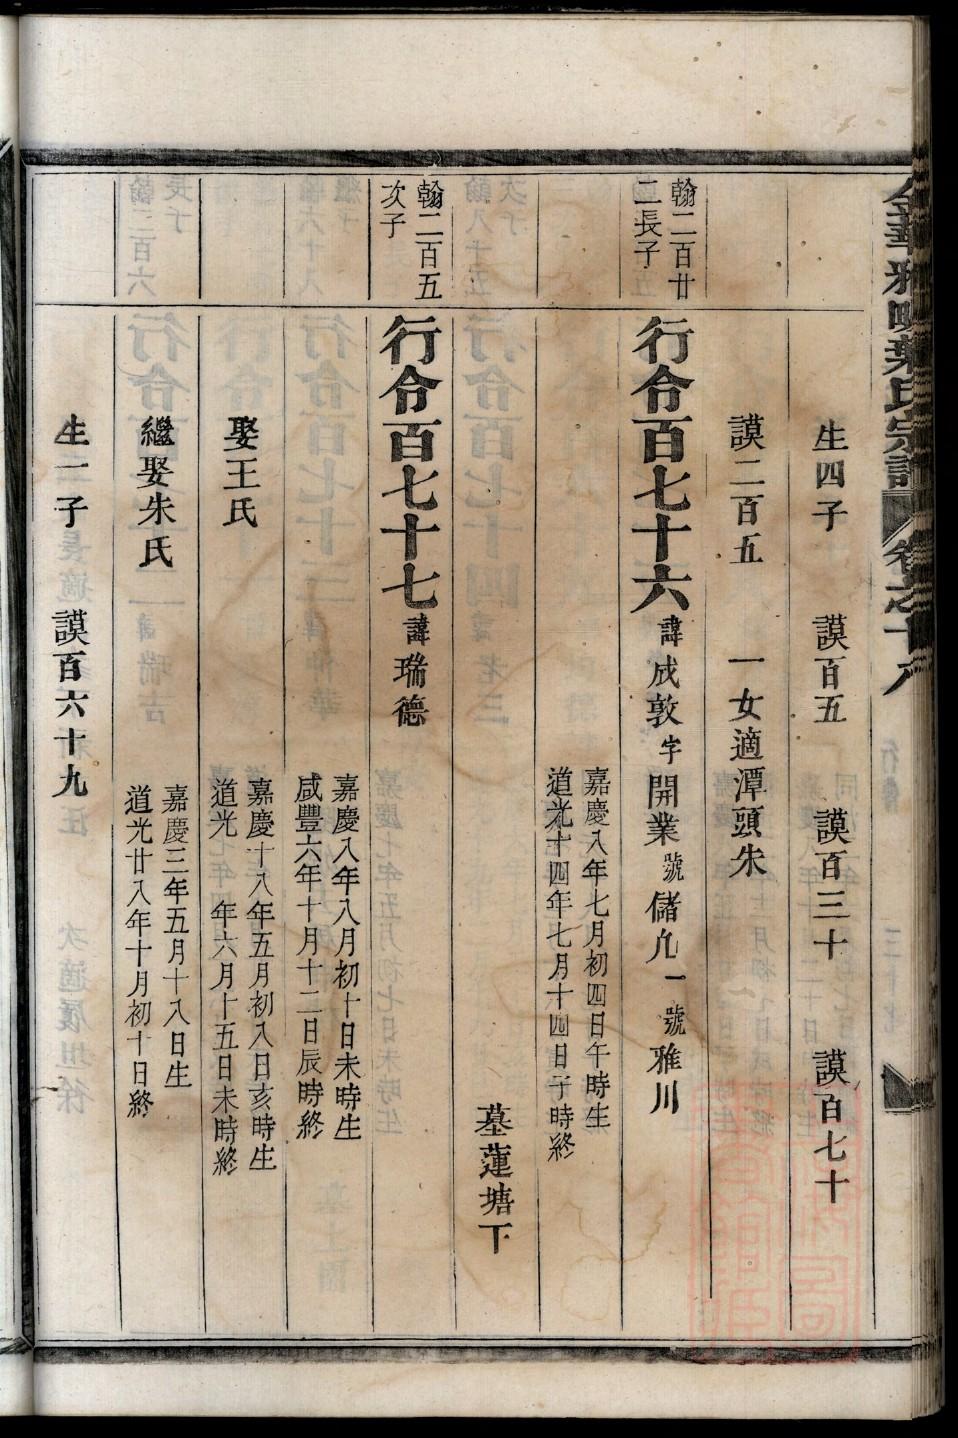 生四子 謨百五 謨百三十 謨百七十
謨二百五 一女適潭頭朱
翰二百廿
二長子
行令百七十六 諱成敦 字開業 號儲九 一號雅川
嘉慶八年七月初四日午時生
道光十四年七月十四日子時終
墓蓮塘下
翰二百五
次子
行令百七十七 諱瑞德
嘉慶八年八月初十日未時生
咸豐六年十月十二日辰時終
娶王氏
嘉慶十八年五月初八日亥時生
道光 年六月十五日未時終
繼娶朱氏
嘉慶三年五月十八日生
道光廿八年十月初十日終
生一子 謨百六十九